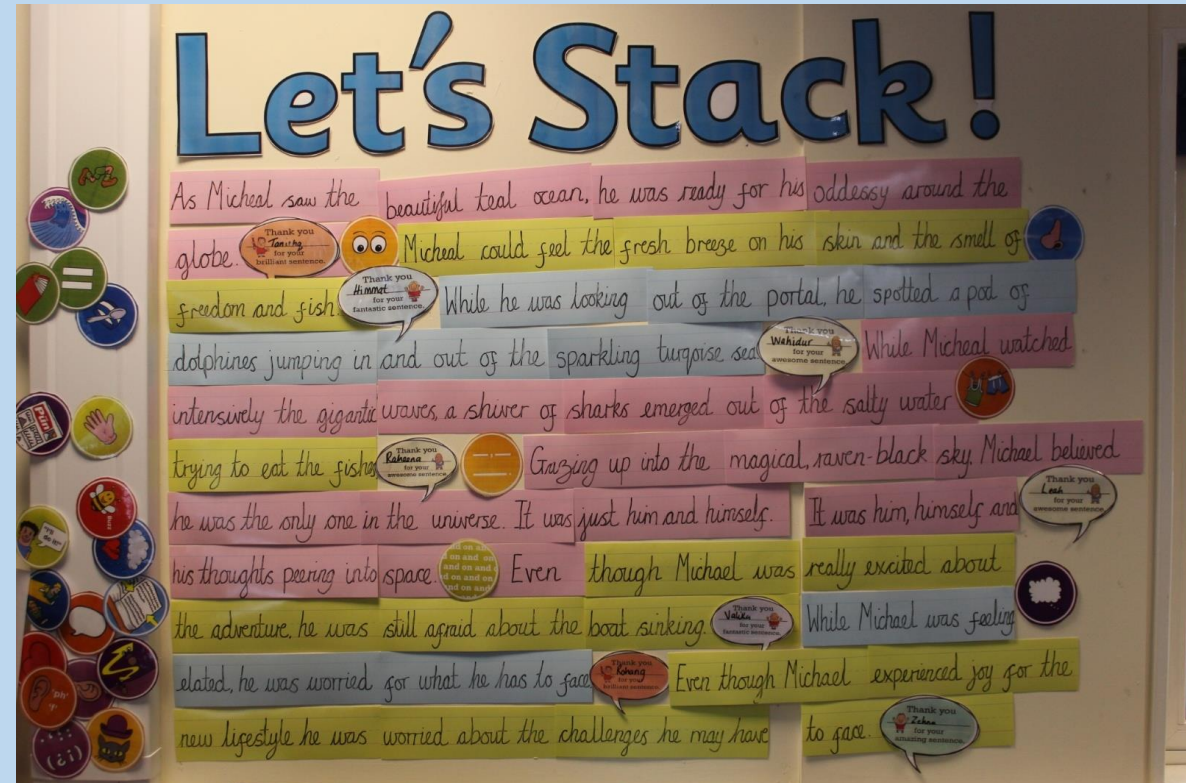 Let's Stack!
As Micheal saw the beautiful teal ocean, he was ready for his oddessy around the
globe. Thank you Tanisha for your brilliant sentence. Micheal could feel the fresh breeze on his skin and the smell of
freedom and fish Thank you Himmat for your fantastic sentence. While he was looking out of the portal, he spotted a pod of
dolphines jumping in and out of the sparkling turqoise sea Thank you Wahidur for your awesome sentence. While Micheal watched
intensively the gigantic waves, a shiver of sharks emerged out of the salty water
trying to eat the fishes Thank you Raheena for your awesome sentence. Gazing up into the magical, raven-black sky. Michael believed
he was the only one in the universe. It was just him and himself. It was him, himself and Thank you Leah for your awesome sentence.
his thoughts peering into space. Even though Michael was really excited about
the adventure, he was still afraid about the boat sinking. Thank you for your fantastic sentence. While Michael was feeling
elated, he was worried for what he has to face Thank you for your brilliant sentence. Even though Michael experienced joy for the
new lifestyle he was worried about the challenges he may have to face. Thank you for your amazing sentence.